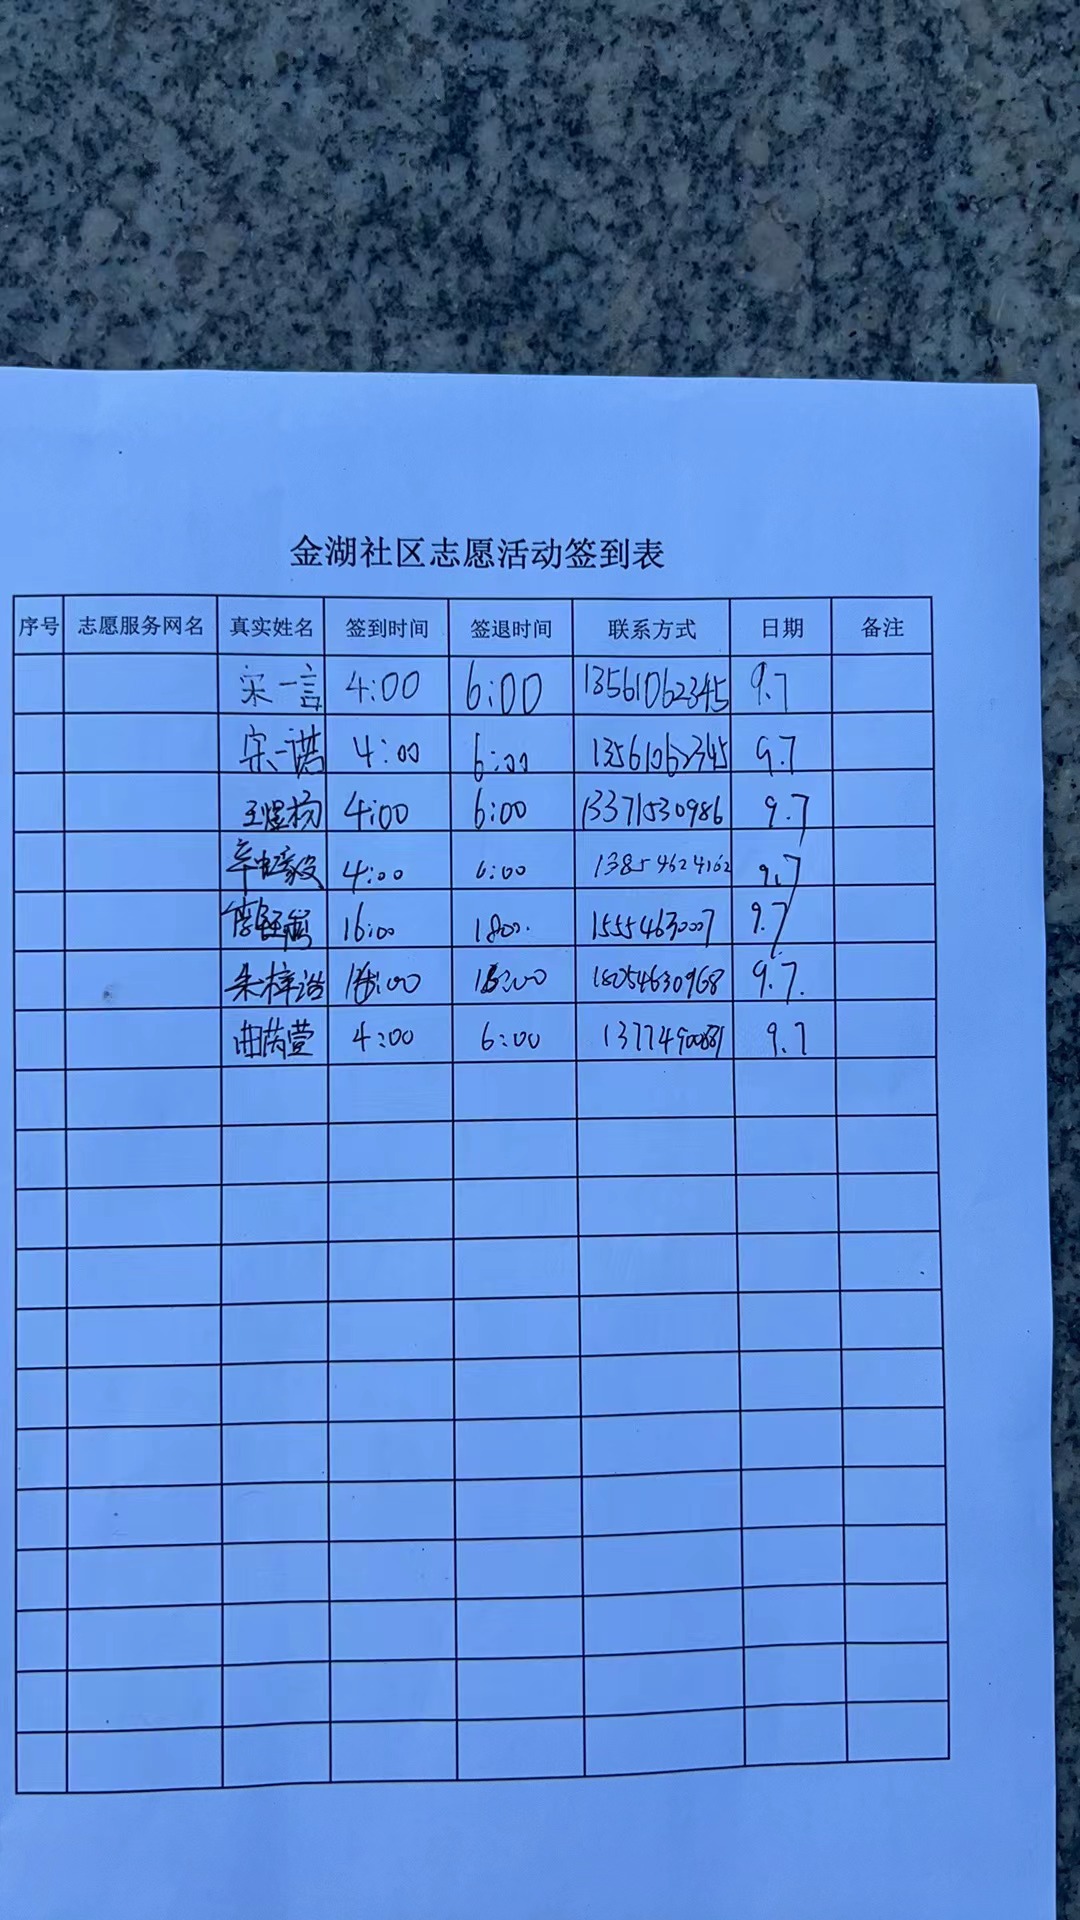 金湖社区志愿活动签到表
序号 志愿服务网名 真实姓名 签到时间 签退时间 联系方式 日期 备注
宋一言 4:00 6:00 13561062345 9.7
宋一诺 4:00 6:00 13561062345 9.7
王煜杨 4:00 6:00 13371530986 9.7
4:00 6:00 13854624162 9.7
16:00 18:00. 15554630007 9.7
朱梓诺 18054630968 9.7.
曲芮萱 4:00 6:00 9.7